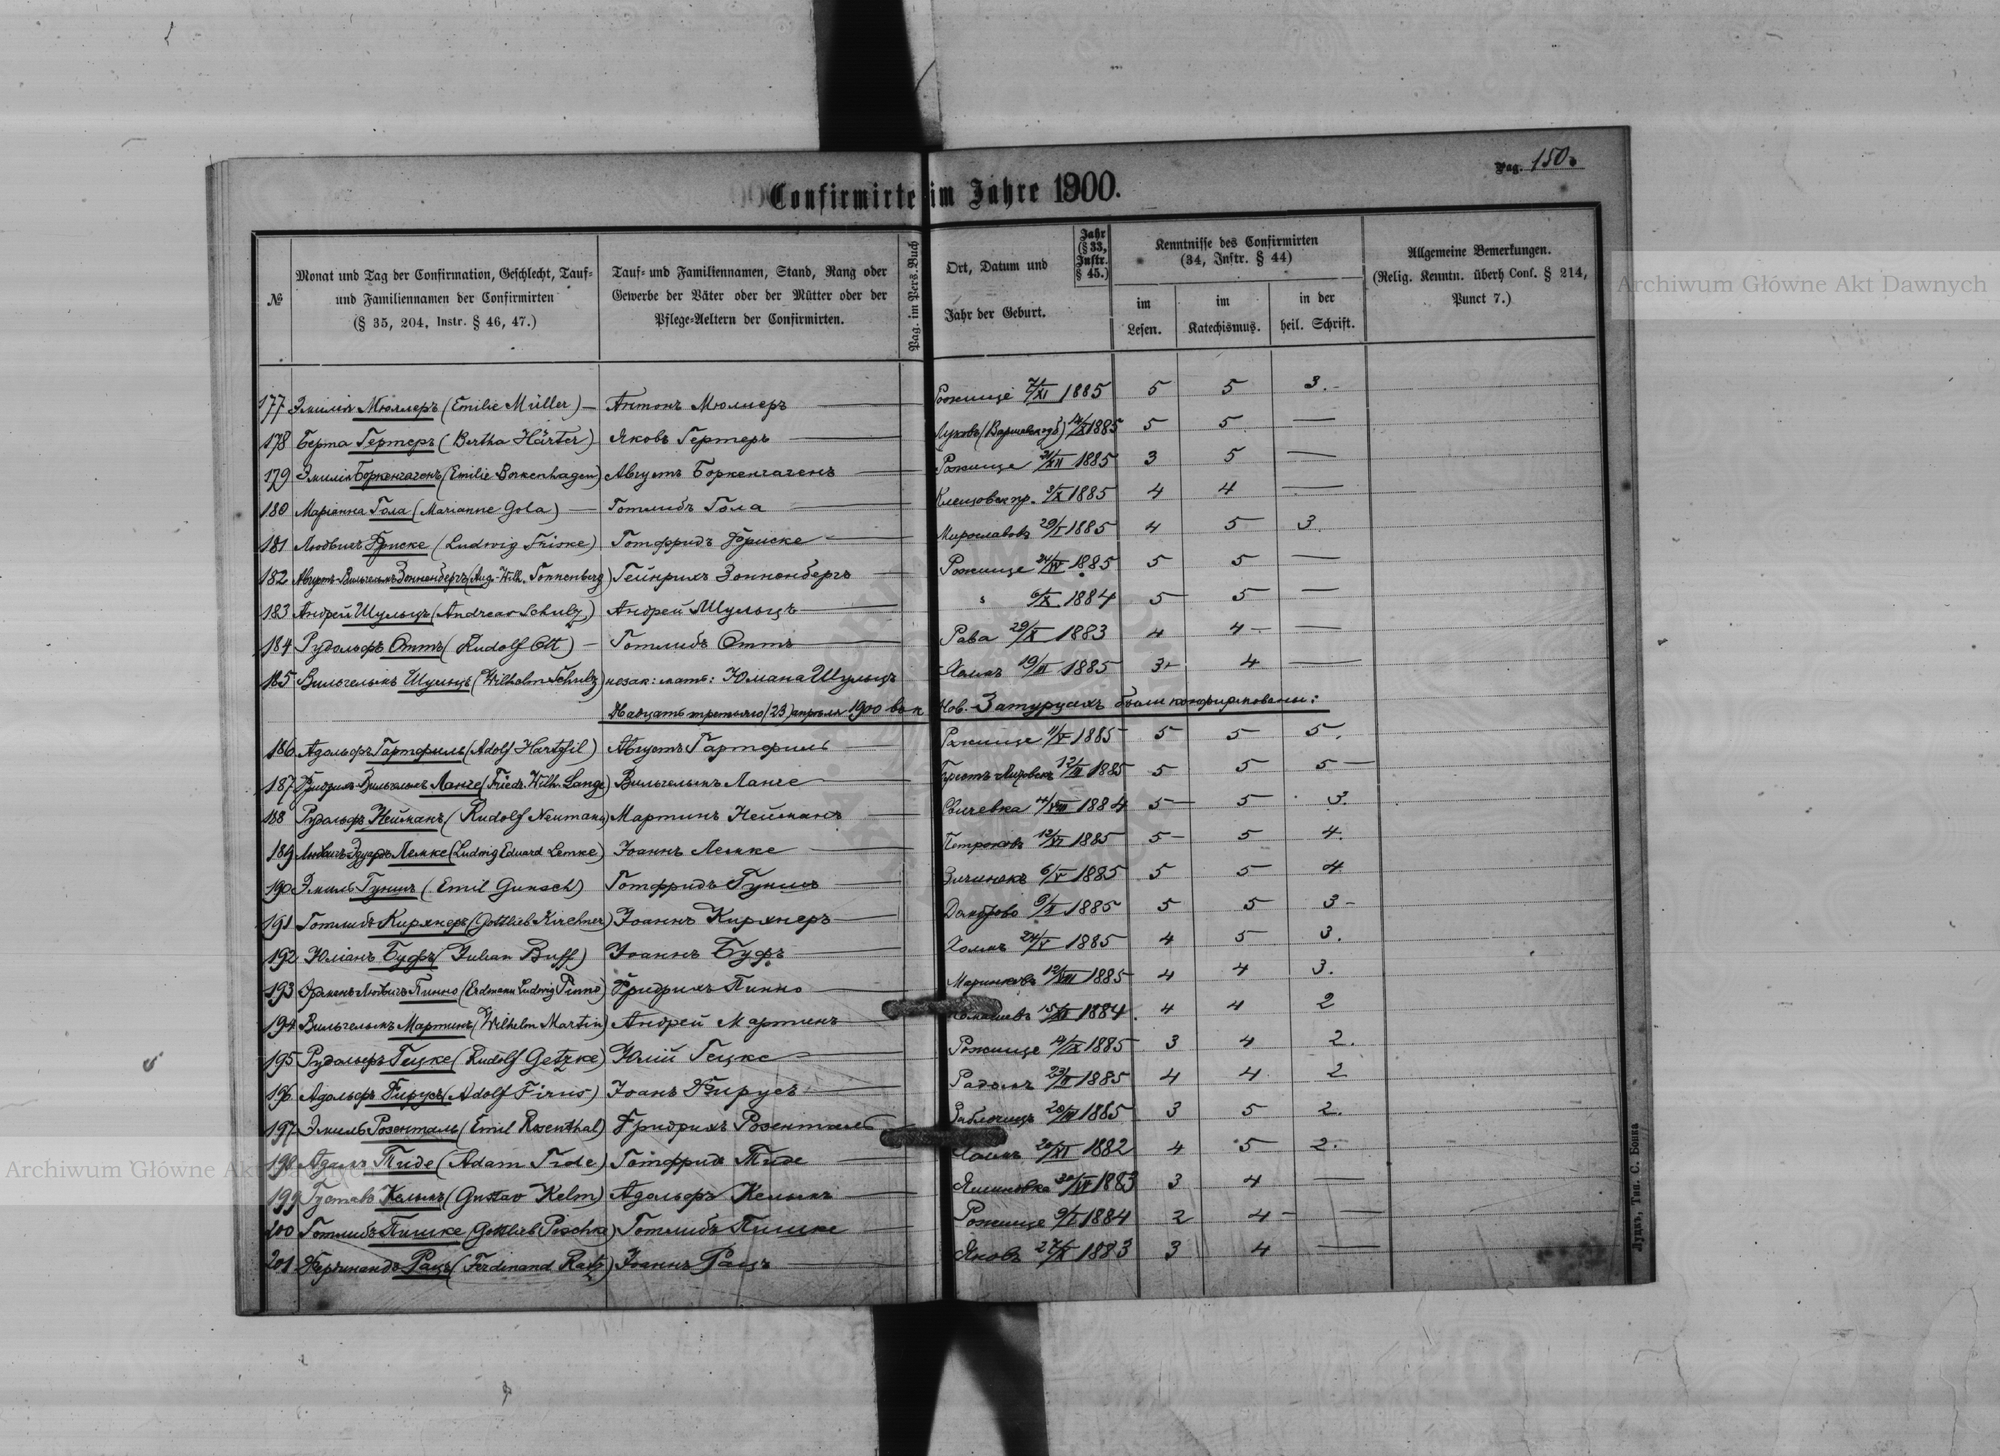 Pag. 150.
Confirmirte im Jahre 1900.
№
Monat und Tag der Confirmation, Geschlecht, Tauf-
und Familiennamen der Confirmirten
(§ 35, 204, Instr. § 46, 47.)
Tauf- und Familiennamen, Stand, Rang oder
Gewerbe der Väter oder der Mütter oder der
Pflege-Aeltern der Confirmirten.
Pag. im Pers.-Buch
Ort, Datum und
Jahr der Geburt.
Jahr
(§ 33,
Instr.
§ 45.)
Kenntnisse des Confirmirten
(34, Instr. § 44)
im
Lesen.
im
Katechismus.
in der
heil. Schrift.
Allgemeine Bemerkungen.
(Relig. Kenntn. überh Conf. § 214,
Punct 7.)
177 Эмилія Мюллеръ (Emilie Müller) — Антонъ Мюллеръ — Рожище 7/XI 1885 5 5 3.
178 Берта Гертеръ (Bertha Härter) Яковъ Гертеръ — 1885 5 5 —
179 Эмилія Боркенгагенъ (Emilie Borkenhagen) Августъ Боркенгагенъ — Рожище 21/XII 1885 3 5 —
180 Маріанна Гола (Marianne Gola) — Готлибъ Гола — 1885 4 4 —
181 Людвигъ Фриске (Ludwig Friske) Готфридъ Фриске — Мирославовъ 29/I 1885 4 5 3
182 Августъ-Вильгельмъ Зонненбергъ (Aug. Wilh. Sonnenberg) Гейнрихъ Зонненбергъ — Рожище 24/IV 1885 5 5 —
183 Андрей Шульцъ (Andreas Schulz) Андрей Шульцъ — " 6/X 1884 5 5 —
184 Рудольфъ Оттъ (Rudolf Ott) — Готлибъ Оттъ — Рава 29/X 1883 4 4 —
185 Вильгельмъ Шульцъ (Wilhelm Schulz) незак: мать: Юліана Шульцъ Холмъ 19/III 1885 3+ 4 —
Двадцать третьяго (23) апрѣля 1900 въ к. Нов.-Затурцахъ были конфирмованы:
186 Адольфъ Гартфиль (Adolf Hartfil) Августъ Гартфиль — Рожище 1885 5 5 5.
187 Фридрихъ-Вильгельмъ Ланге (Friedr. Wilh. Lange) Вильгельмъ Ланге — 12/III 1885 5 5 5 —
188 Рудольфъ Нейманъ (Rudolf Neumann) Мартинъ Нейманъ — 1884 5 5 3.
189 Людвигъ-Эдуардъ Лемке (Ludwig Eduard Lemke) Іоаннъ Лемке — Петроковъ 12/VI 1885 5 5 4.
190 Эмиль Гуншъ (Emil Gunsch) Готфридъ Гуншъ — 6/V 1885 5 5 4
191 Готлибъ Кирхнеръ (Gottlieb Kirchner) Іоаннъ Кирхнеръ — Домброво 9/X 1885 5 5 3 —
192 Юліанъ Буфъ (Julian Buff) Іоаннъ Буфъ — Холмъ 24/V 1885 4 5 3.
193 Эрдменъ-Людвигъ Пинно (Erdmann Ludwig Pinno) Фридрихъ Пинно — Маринковъ 12/VIII 1885 4 4 3.
194 Вильгельмъ Мартинъ (Wilhelm Martin) Андрей Мартинъ — 1884. 4 4 2
195 Рудольфъ Гецке (Rudolf Getzke) Юлій Гецке — Рожище 1885 3 4 2.
196 Адольфъ Фирусъ (Adolf Firus) Іоанъ Фирусъ — Радомъ 1885 4 4 2
197 Эмиль Розенталь (Emil Rosenthal) Фридрихъ Розенталь 1885 3 5 2.
198 Адамъ Тиде (Adam Tide) Готфридъ Тиде — Холмъ 20/XI 1882 4 5 2.
199 Густавъ Кельмъ (Gustav Kelm) Адольфъ Кельмъ — Яшиновка 1883 3 4 —
200 Готлибъ Пишке (Gottlieb Pischke) Готлибъ Пишке — Рожище 9/I 1884 2 4 —
201 Фердинандъ Рацъ (Ferdinand Ratz) Іоаннъ Рацъ — Яковъ 27/X 1883 3 4 —
Луцкъ, Тип. С. Бонка
Archiwum Główne Akt Dawnych
Archiwum Główne Akt